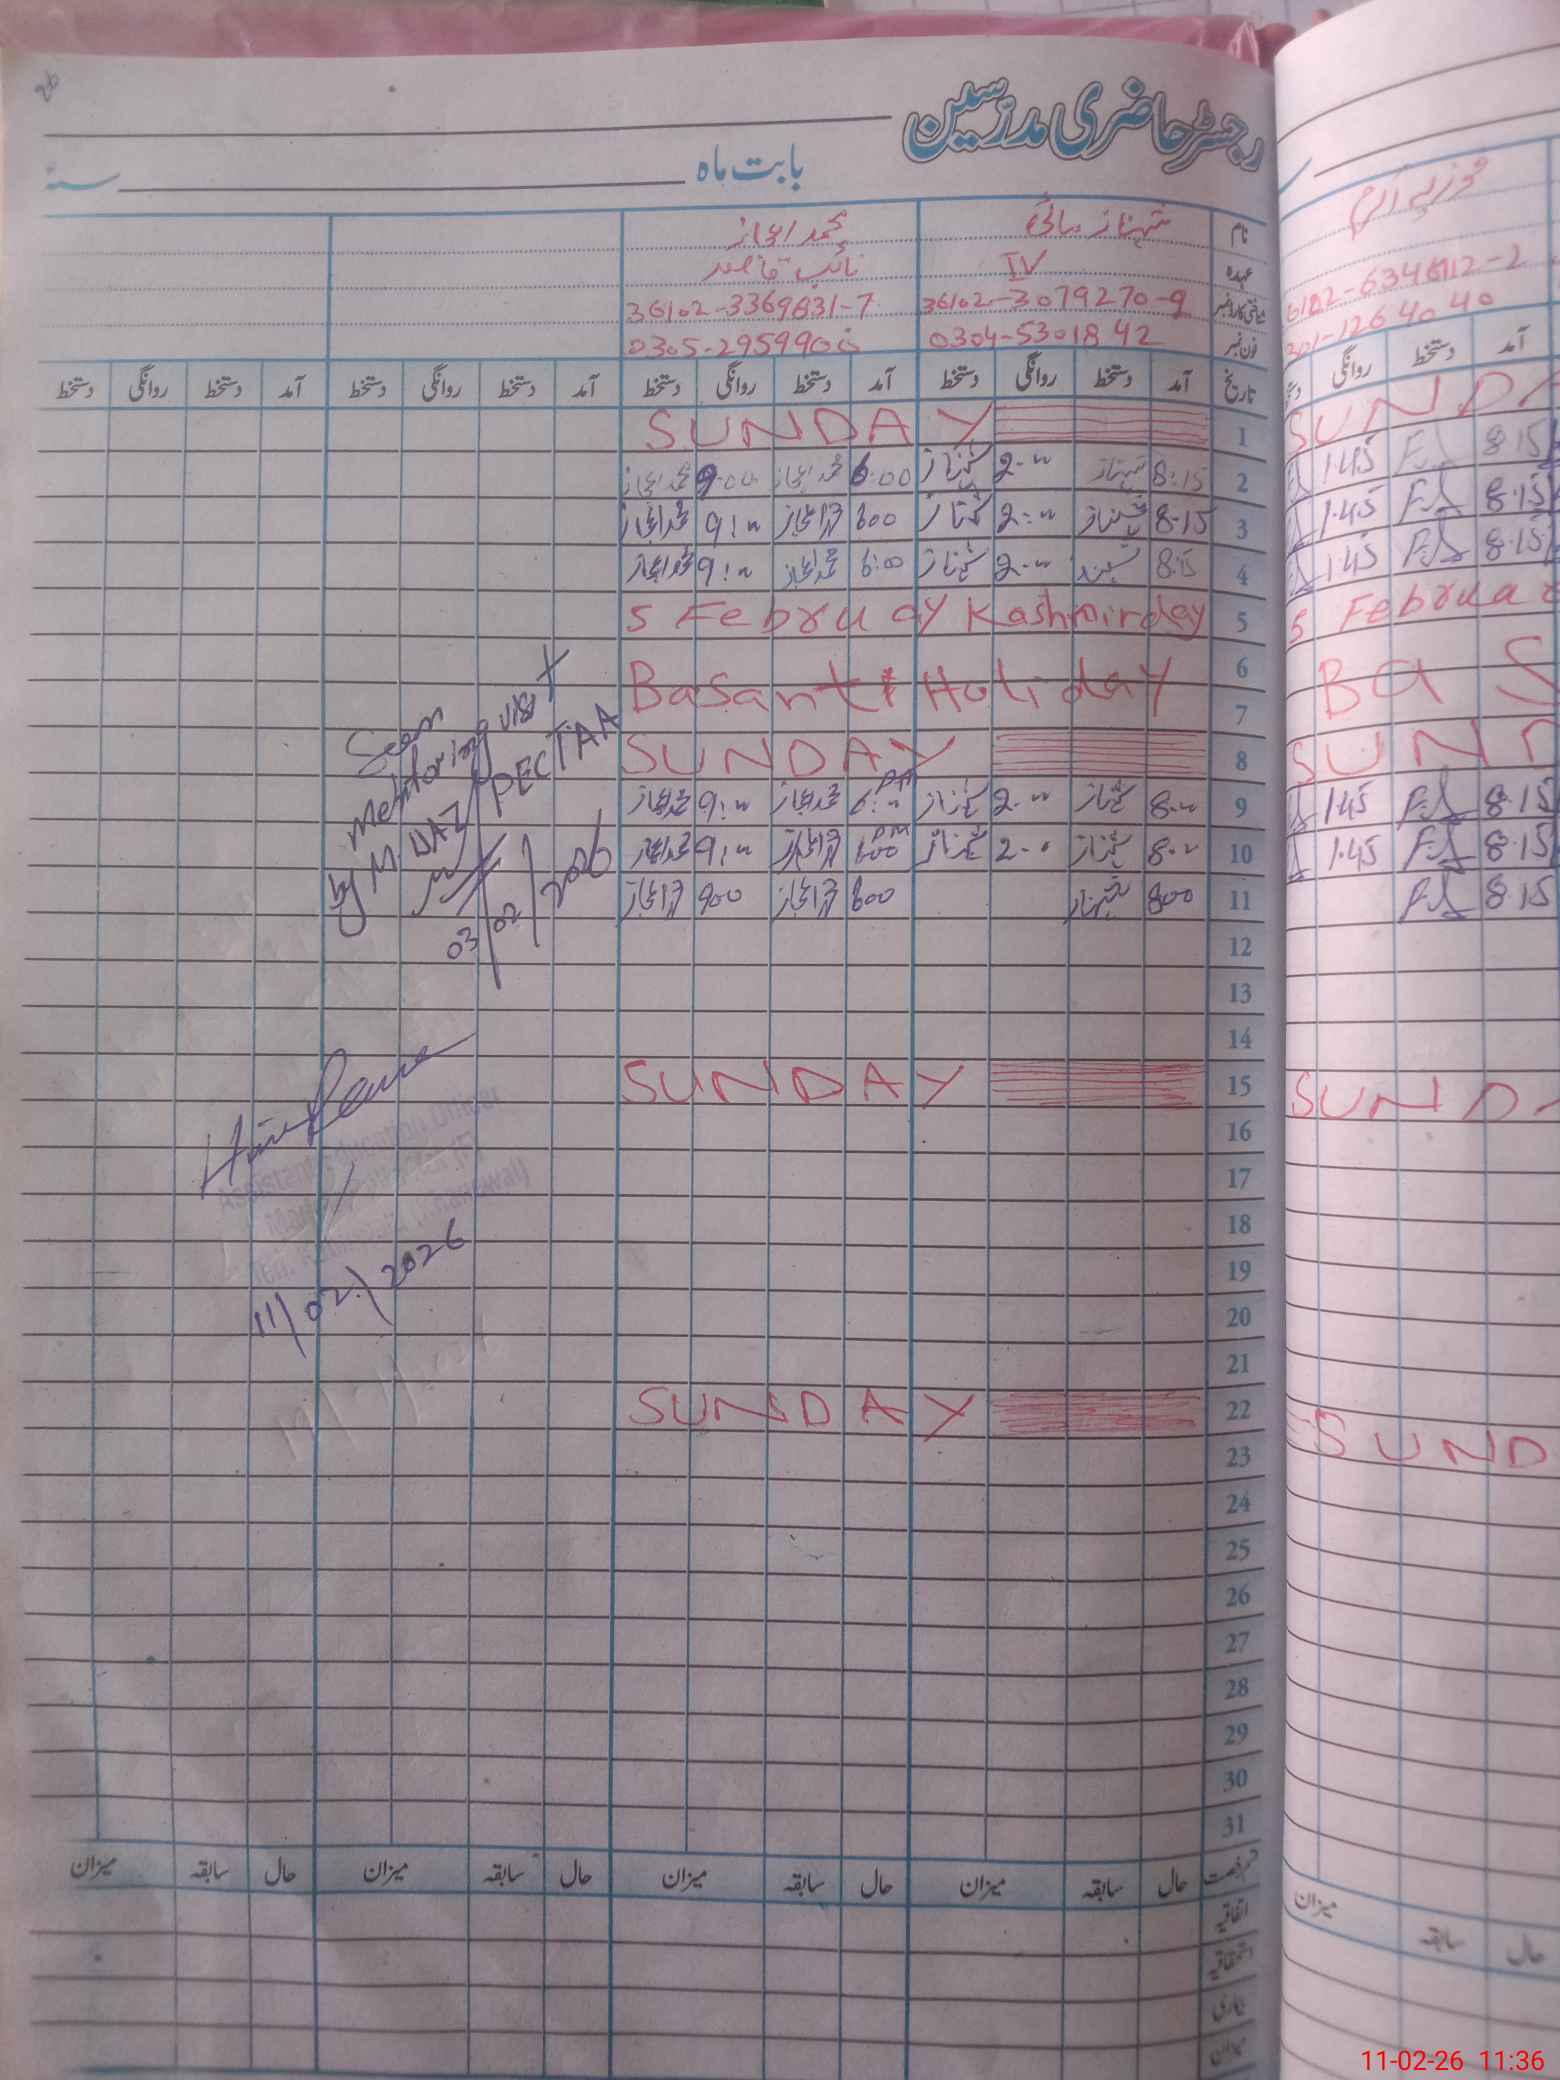 26
رجسٹر حاضری مدرّسین
بابت ماہ سنہ
نام شہناز مائی محمد اعجاز
عہدہ IV نائب قاصد
36102-3079270-9 36102-3369831-7
فون نمبر 0304-5301842 0305-2959900
تاریخ آمد دستخط روانگی دستخط آمد دستخط روانگی دستخط آمد دستخط روانگی دستخط آمد دستخط روانگی دستخط
1 SUNDAY
2 8:15 شہناز 2:00 شہناز 6:00 محمد اعجاز 9:00 محمد اعجاز
3 8:15 شہناز 2:00 شہناز 600 محمد اعجاز 9:00 محمد اعجاز
4 8:15 2:00 شہناز 6:00 محمد اعجاز 9:00 محمد اعجاز
5 5 Februay Kashmirday
6 Basant Holiday
7
8 SUNDAY
9 8:00 شہناز 2:00 شہناز 6:00 PM محمد اعجاز 9:00 محمد اعجاز
10 8:00 شہناز 2:00 شہناز 600 PM محمد اعجاز 9:00 محمد اعجاز
11 800 شہناز 600 محمد اعجاز 900 محمد اعجاز
12
13
14
15 SUNDAY
16
17
18
19
20
21
22 SUNDAY
23
24
25
26
27
28
29
30
31
Seen
Mentoring visit
by M DAZ/PECTAA
03/02/2026
Assistant Education Officer
11/02/2026
قسم رخصت حال سابقہ میزان حال سابقہ میزان حال سابقہ میزان حال سابقہ میزان
اتفاقیہ
استحقاقیہ
بیماری
میزان
فوزیہ اکرم
6346112-2
1264040
آمد دستخط روانگی
SUNDA
8:15 1:45
8:15 1:45
8:15 1:45
5 Februar
BAS
SUN
8:15 1:45
8:15 1:45
8:15
SUNDA
SUND
حال سابقہ میزان
11-02-26 11:36